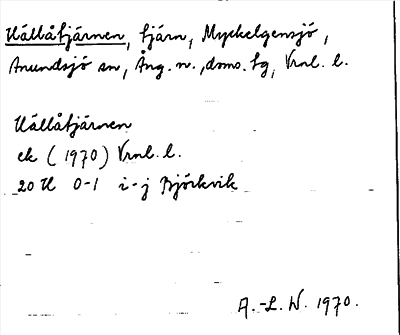 Källåtjärnen, tjärn, Myckelgensjö,
Anundsjö sn, Ång. n., doms. tg, Vrnl. l.
Källåtjärnen
ek (1970) Vrnl. l.
20 H 0-1 i-j Björkvik
A.-L. W. 1970.